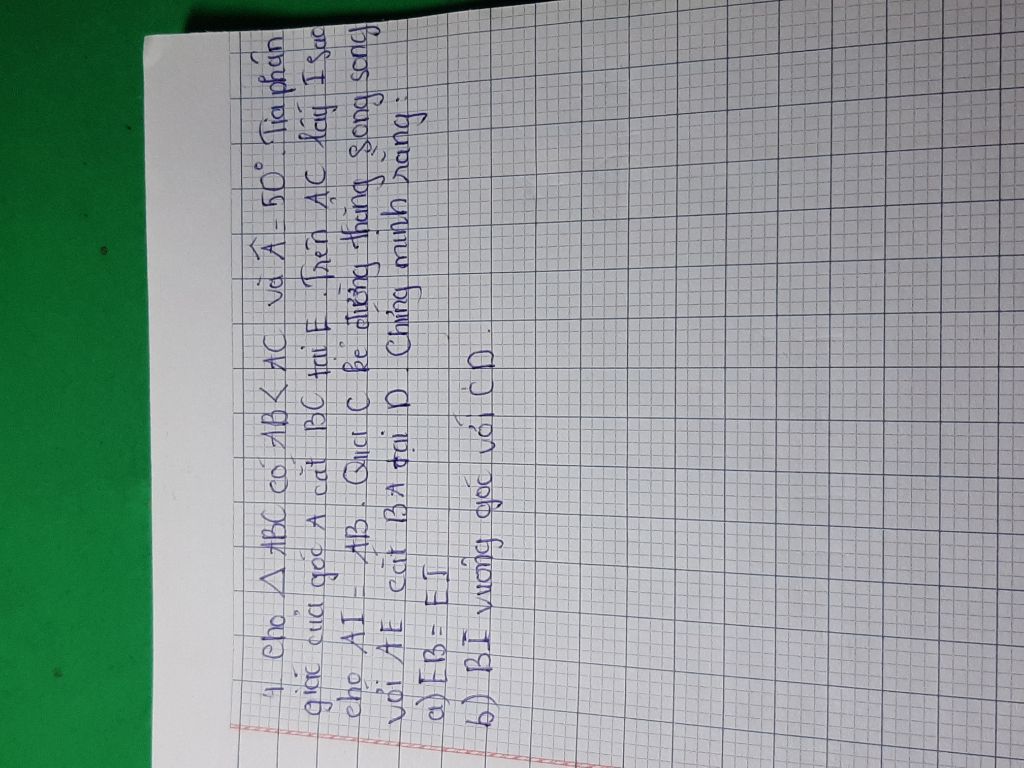 1. Cho △ ABC có AB < AC và Â = 50°. Tia phân
giác của góc A cắt BC tại E. Trên AC lấy I sao
cho AI = AB. Qua C kẻ đường thẳng song song
với AE cắt BA tại D. Chứng minh rằng:
a) EB = EI
b) BI vuông góc với CD.